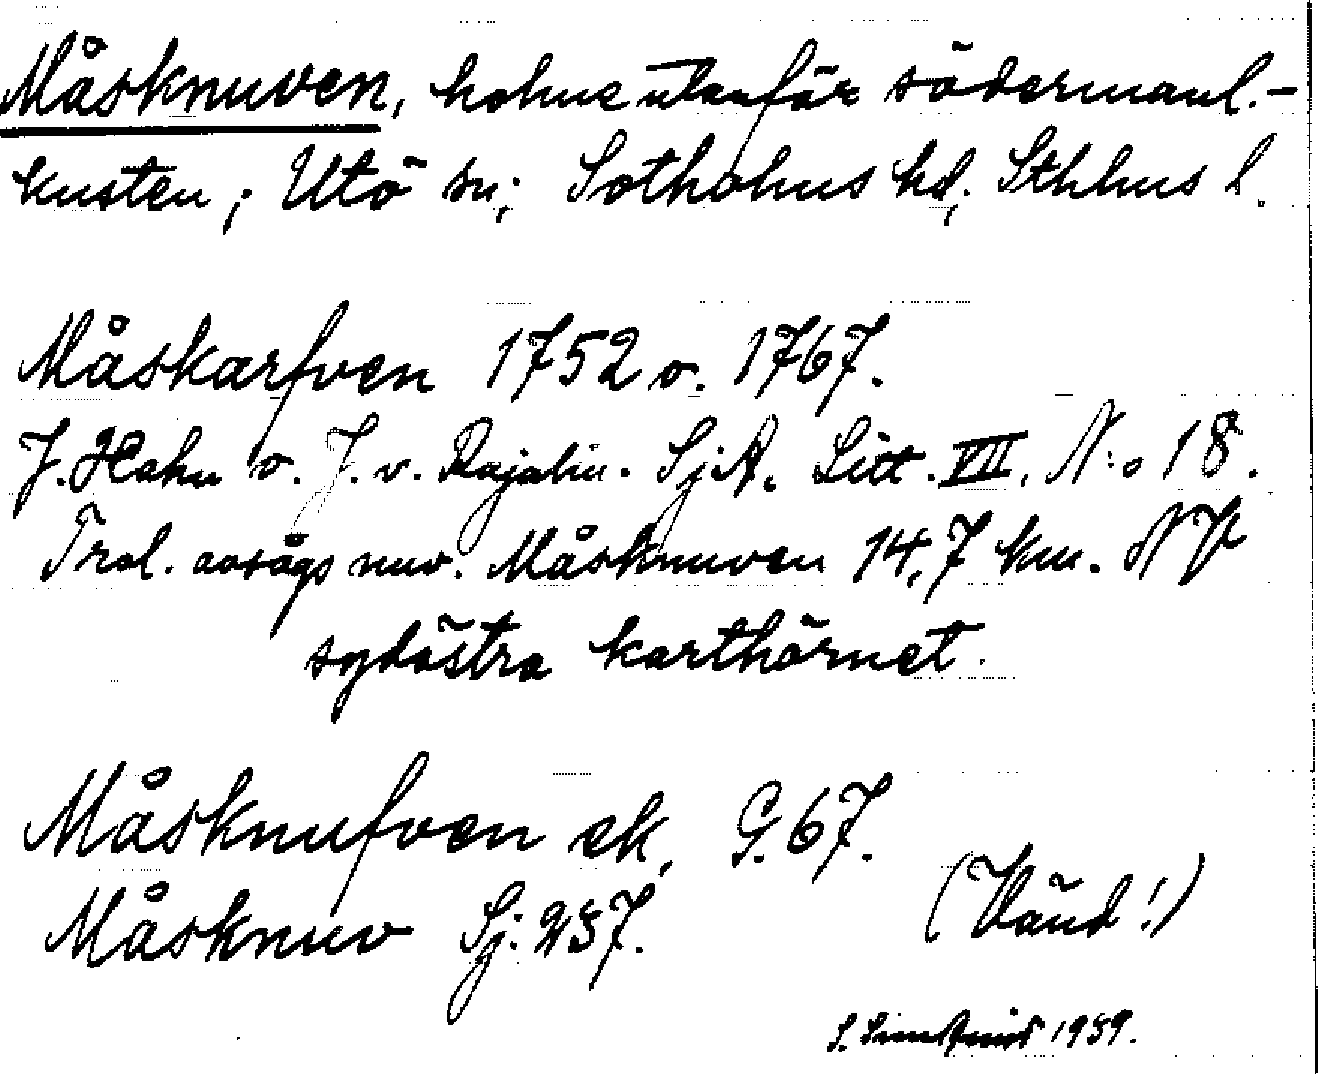 Måsknuven, holme utanför södermanl.-
kusten; Utö sn; Sotholms hd; Sthlms l.
Måskarfven 1752 o. 1767.
J. Hahn o. J. v. Rajalin. SjA. Litt. VII. N:o 18.
Trol. avsågs nuv. Måsknuven 14,7 km. NV
sydöstra karthörnet.
Måsknufven ek. G. 67.
Måsknuv Sj: 257.
(Vänd!)
1959.